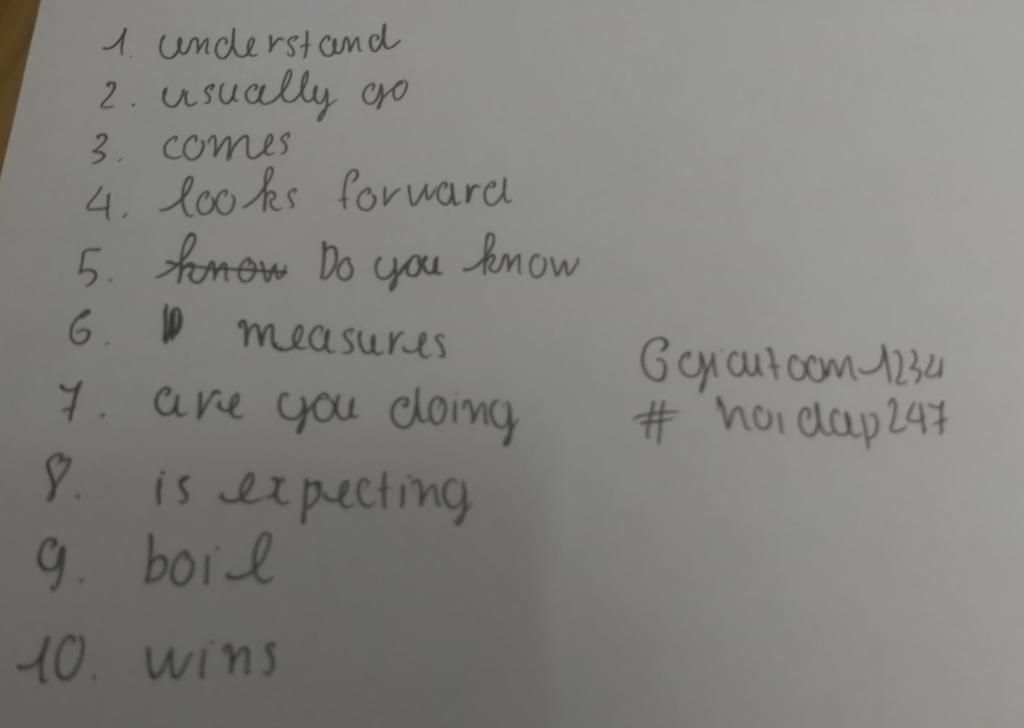 1. understand
2. usually go
3. comes
4. looks forward
5. know Do you know
6. measures
7. are you doing
8. is expecting
9. boil
10. wins
# hoidap247